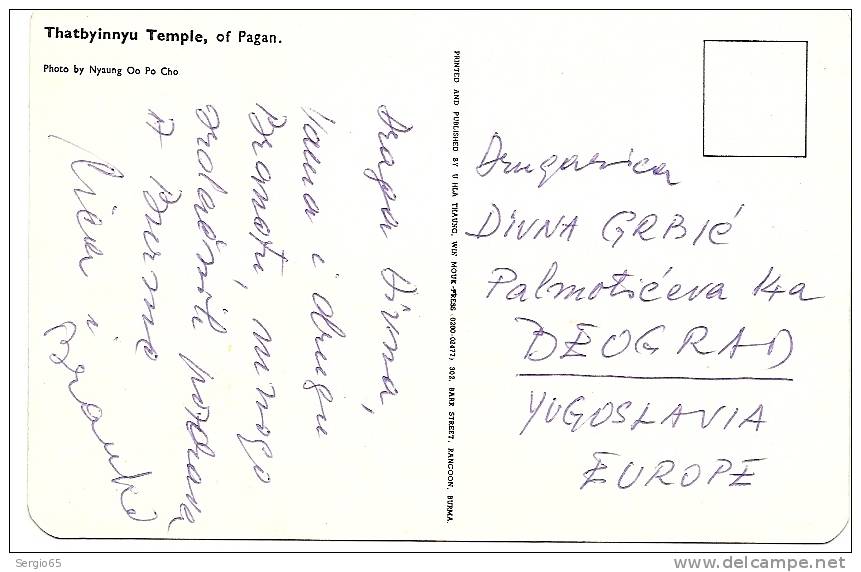 Thatbyinnyu Temple, of Pagan.
Photo by Nyaung Oo Po Cho
Draga Divna,
Vama i drugu
Branetu, mnogo
srdačnih pozdrava
iz Burme
i Branko
PRINTED AND PUBLISHED BY U HLA THAUNG, WIN MOUK-PRESS (0280-02477) 302, BARR STREET, RANGOON, BURMA.
Drugarica
DIVNA GRBIĆ
Palmotićeva 14a
BEOGRAD
YUGOSLAVIA
EUROPE
Sergio65
www.delcampe.net